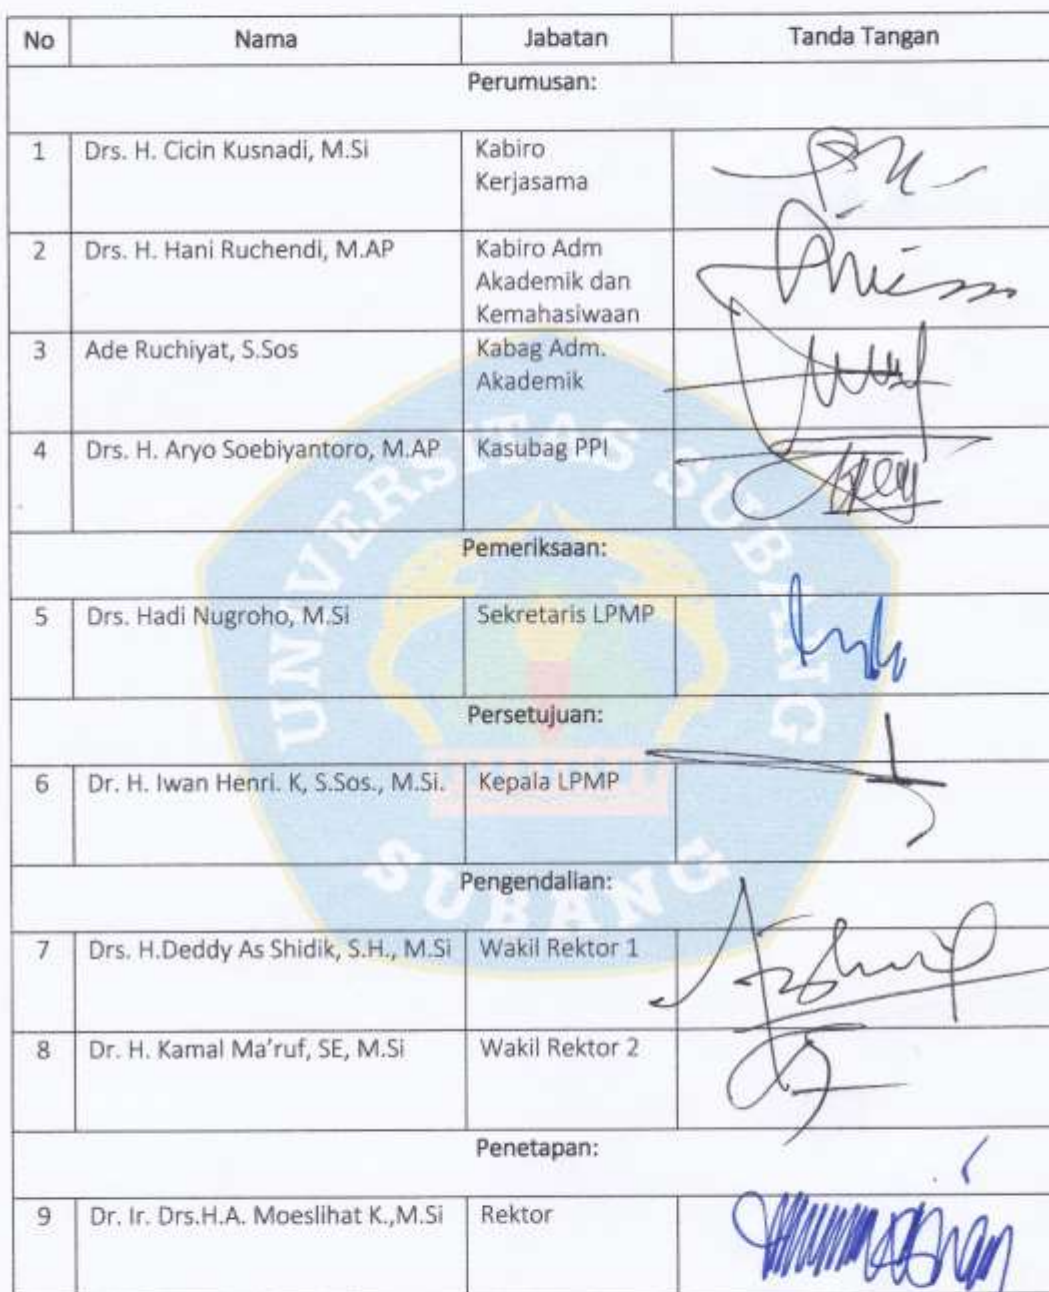 No Nama Jabatan Tanda Tangan
Perumusan:
1 Drs. H. Cicin Kusnadi, M.Si Kabiro
Kerjasama
2 Drs. H. Hani Ruchendi, M.AP Kabiro Adm
Akademik dan
Kemahasiwaan
3 Ade Ruchiyat, S.Sos Kabag Adm.
Akademik
4 Drs. H. Aryo Soebiyantoro, M.AP Kasubag PPI
Pemeriksaan:
5 Drs. Hadi Nugroho, M.Si Sekretaris LPMP
Persetujuan:
6 Dr. H. Iwan Henri. K, S.Sos., M.Si. Kepala LPMP
Pengendalian:
7 Drs. H.Deddy As Shidik, S.H., M.Si Wakil Rektor 1
8 Dr. H. Kamal Ma'ruf, SE, M.Si Wakil Rektor 2
Penetapan:
9 Dr. Ir. Drs.H.A. Moeslihat K.,M.Si Rektor
UNIVERSITAS SUBANG
SUBANG